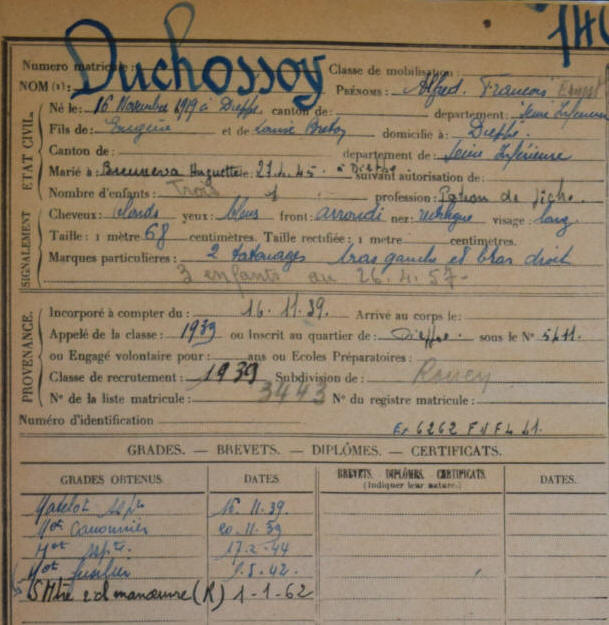 140
Numero matricule : Duchossoy Classe de mobilisation :
NOM (1) : PRÉNOMS : Alfred. François Ernest
Né le : 16 Novembre 1919 à Dieppe canton de : departement : Seine Inferieure
Fils de : Eugène et de Louise domicilié à : Dieppe.
Canton de : departement de : Seine Inférieure
Marié à : Huguette le : 21.4.45 à Dieppe suivant autorisation de :
Nombre d'enfants : Trois profession : Patron de pêche.
Cheveux : blonds yeux : bleus front : arrondi nez : rectiligne visage : long
Taille : 1 mètre 68 centimètres. Taille rectifiée : 1 metre centimetres.
Marques particulières : 2 tatouages bras gauche et bras droit
3 enfants au 26.4.57-
ETAT CIVIL.
SIGNALEMENT
Incorporé à compter du : 16.11.39. Arrivé au corps le :
Appelé de la classe : 1939 ou Inscrit au quartier de : Dieppe. sous le N° 5411.
ou Engagé volontaire pour : ans ou Ecoles Préparatoires :
Classe de recrutement : 1939 Subdivision de : Rouen
N° de la liste matricule : 3443 N° du registre matricule :
PROVENANCE.
Numéro d'identification Ex 6262 F
GRADES. — BREVETS. — DIPLÔMES. — CERTIFICATS.
GRADES OBTENUS. DATES BREVETS. DIPLÔMES. CERTIFICATS. DATES.
(Indiquer leur nature.)
Matelot 16.11.39.
Mot Canonnier 20.11.39
Mot 17.2.44
Mot fusilier 42.
S Mtre 2 cl manœuvre (R) 1-1-62